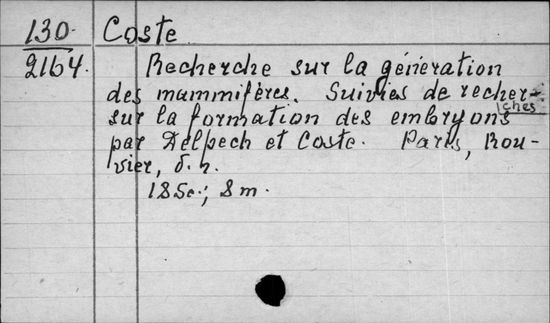 130. Coste
2164. Recherche sur la génération
des mammifères. Suivies de recher-
ches
sur la formation des embryons
par Delpech et Coste. Paris, Rou-
vier, s. n.
18 Sc.; 8 m.